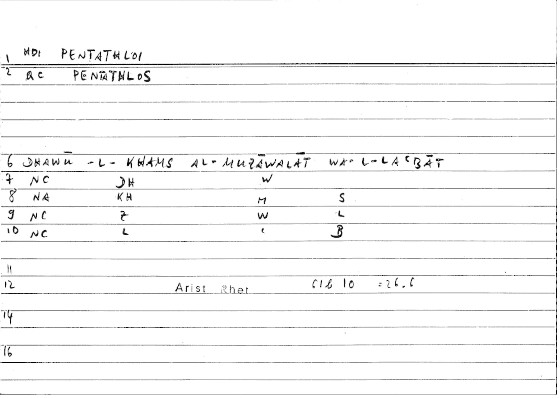 1 HDI PENTATHLOI
2 RC PENTATHLOS
6 DHAWŪ -L- KHAMS AL-MUZĀWALĀT WA-L-LAʿBĀT
7 NC DH W
8 NA KH M S
9 NC Z W L
10 NC L ʿ B
11
12 Arist Rhet 61b 10 =26.6
14
16